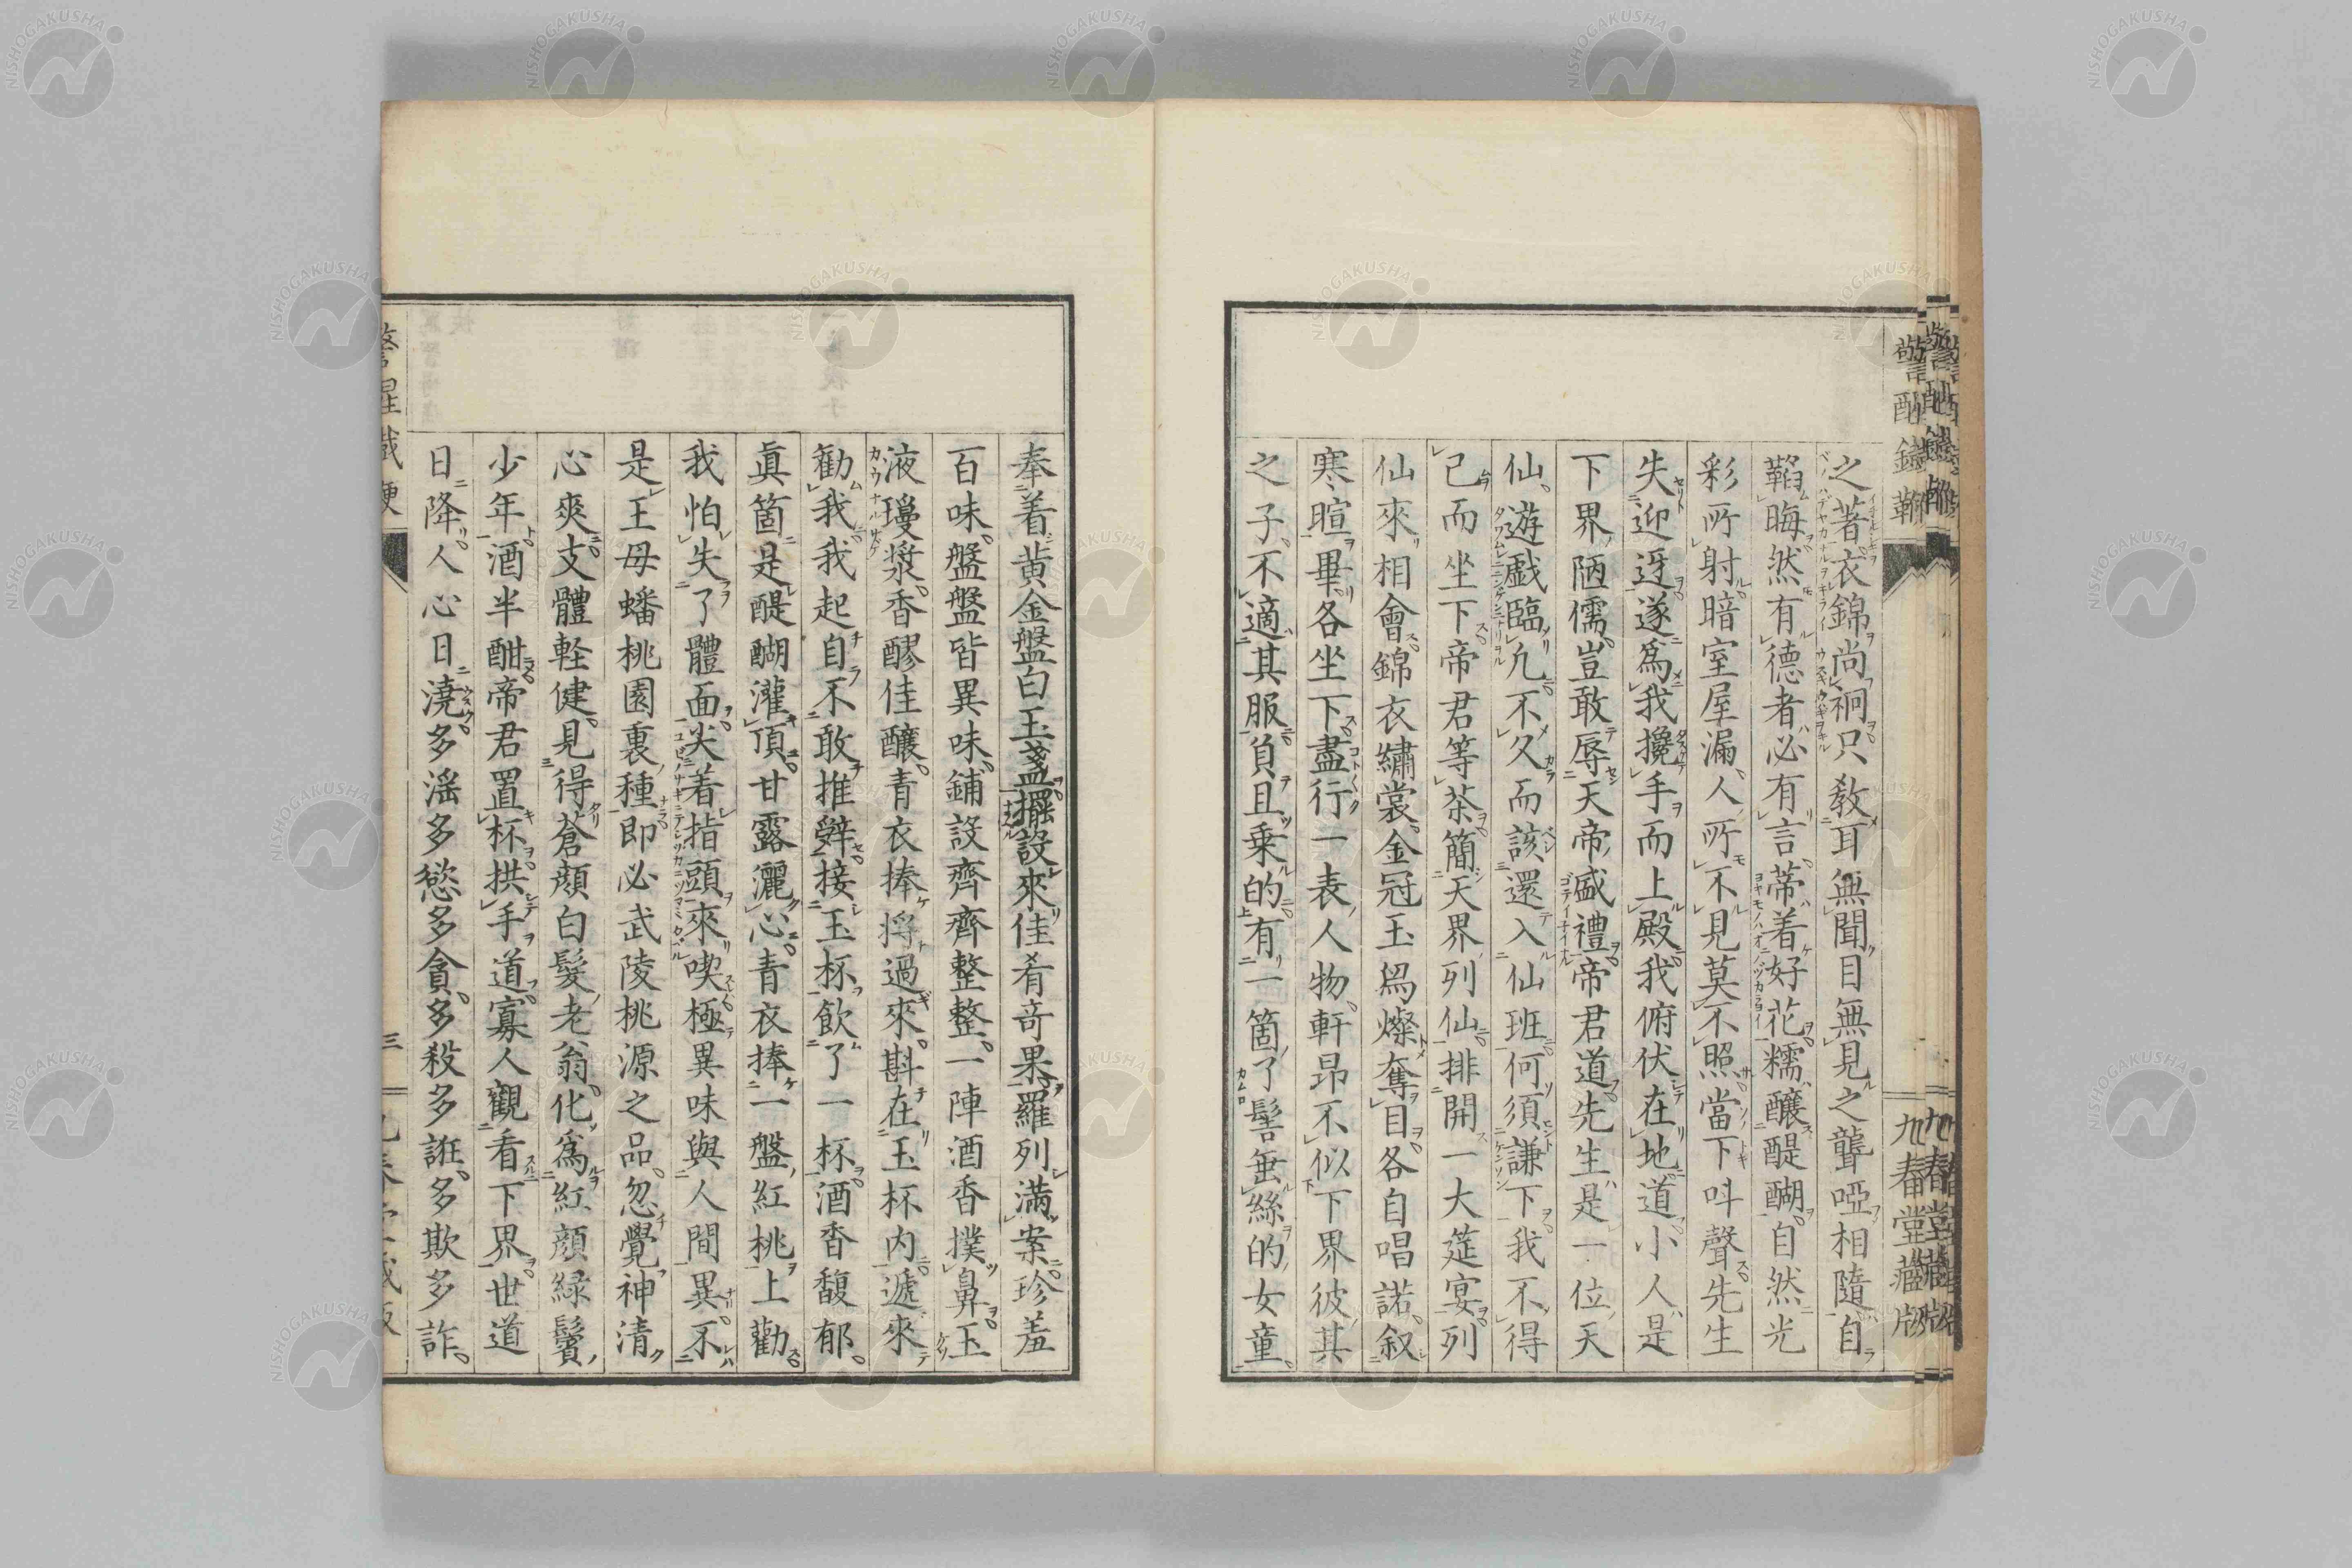 之著。衣錦尚褧。只教耳無聞目無見之聾啞相隨。自
韜晦然有德者必有言。蒂着好花。糯釀醍醐。自然光
彩所射。暗室屋漏。人所不見。莫不照。當下呌聲先生
失迎迓。遂爲我攙手而上殿。我俯伏在地。道。小人是
下界陋儒。豈敢辱天帝盛禮。帝君道。先生是一位天
仙。遊戲臨凡。不久而該還入仙班。何須謙下。我不得
已而坐下。帝君等茶簡天界列仙。排開一大筵宴。列
仙來相會。錦衣繡裳。金冠玉舄。燦奪目。各自唱諾。叙
寒暄畢。各坐下。盡行一表人物。軒昂不似下界彼其
之子。不適其服。負且乘的。有一箇了髻垂絲的女童。
奉着黃金盤白玉盞。擺設來。佳肴奇果。羅列滿案。珍羞
百味。盤盤皆異味。鋪設齊齊整整。一陣酒香撲鼻。玉
液瓊漿。香醪佳釀。青衣捧將過來。斟在玉杯內。遞來
勸我。我起自不敢推辭。接玉杯飲了一杯。酒香馥郁。
眞箇是醍醐灌頂。甘露灑心。青衣捧一盤紅桃上勸
我怕失了體面。尖着指頭來喫。極異味與人間異。不
是王母蟠桃園裏種。即必武陵桃源之品。忽覺神清
心爽。支體軽健。見得蒼顔白髮老翁。化爲紅顔緑鬢
少年。酒半酣。帝君置杯拱手道。寡人觀看下界。世道
日降。人心日澆。多滛多慾多貪。多殺多誑。多欺多詐。
警醒鐵鞭
三
九春堂藏版